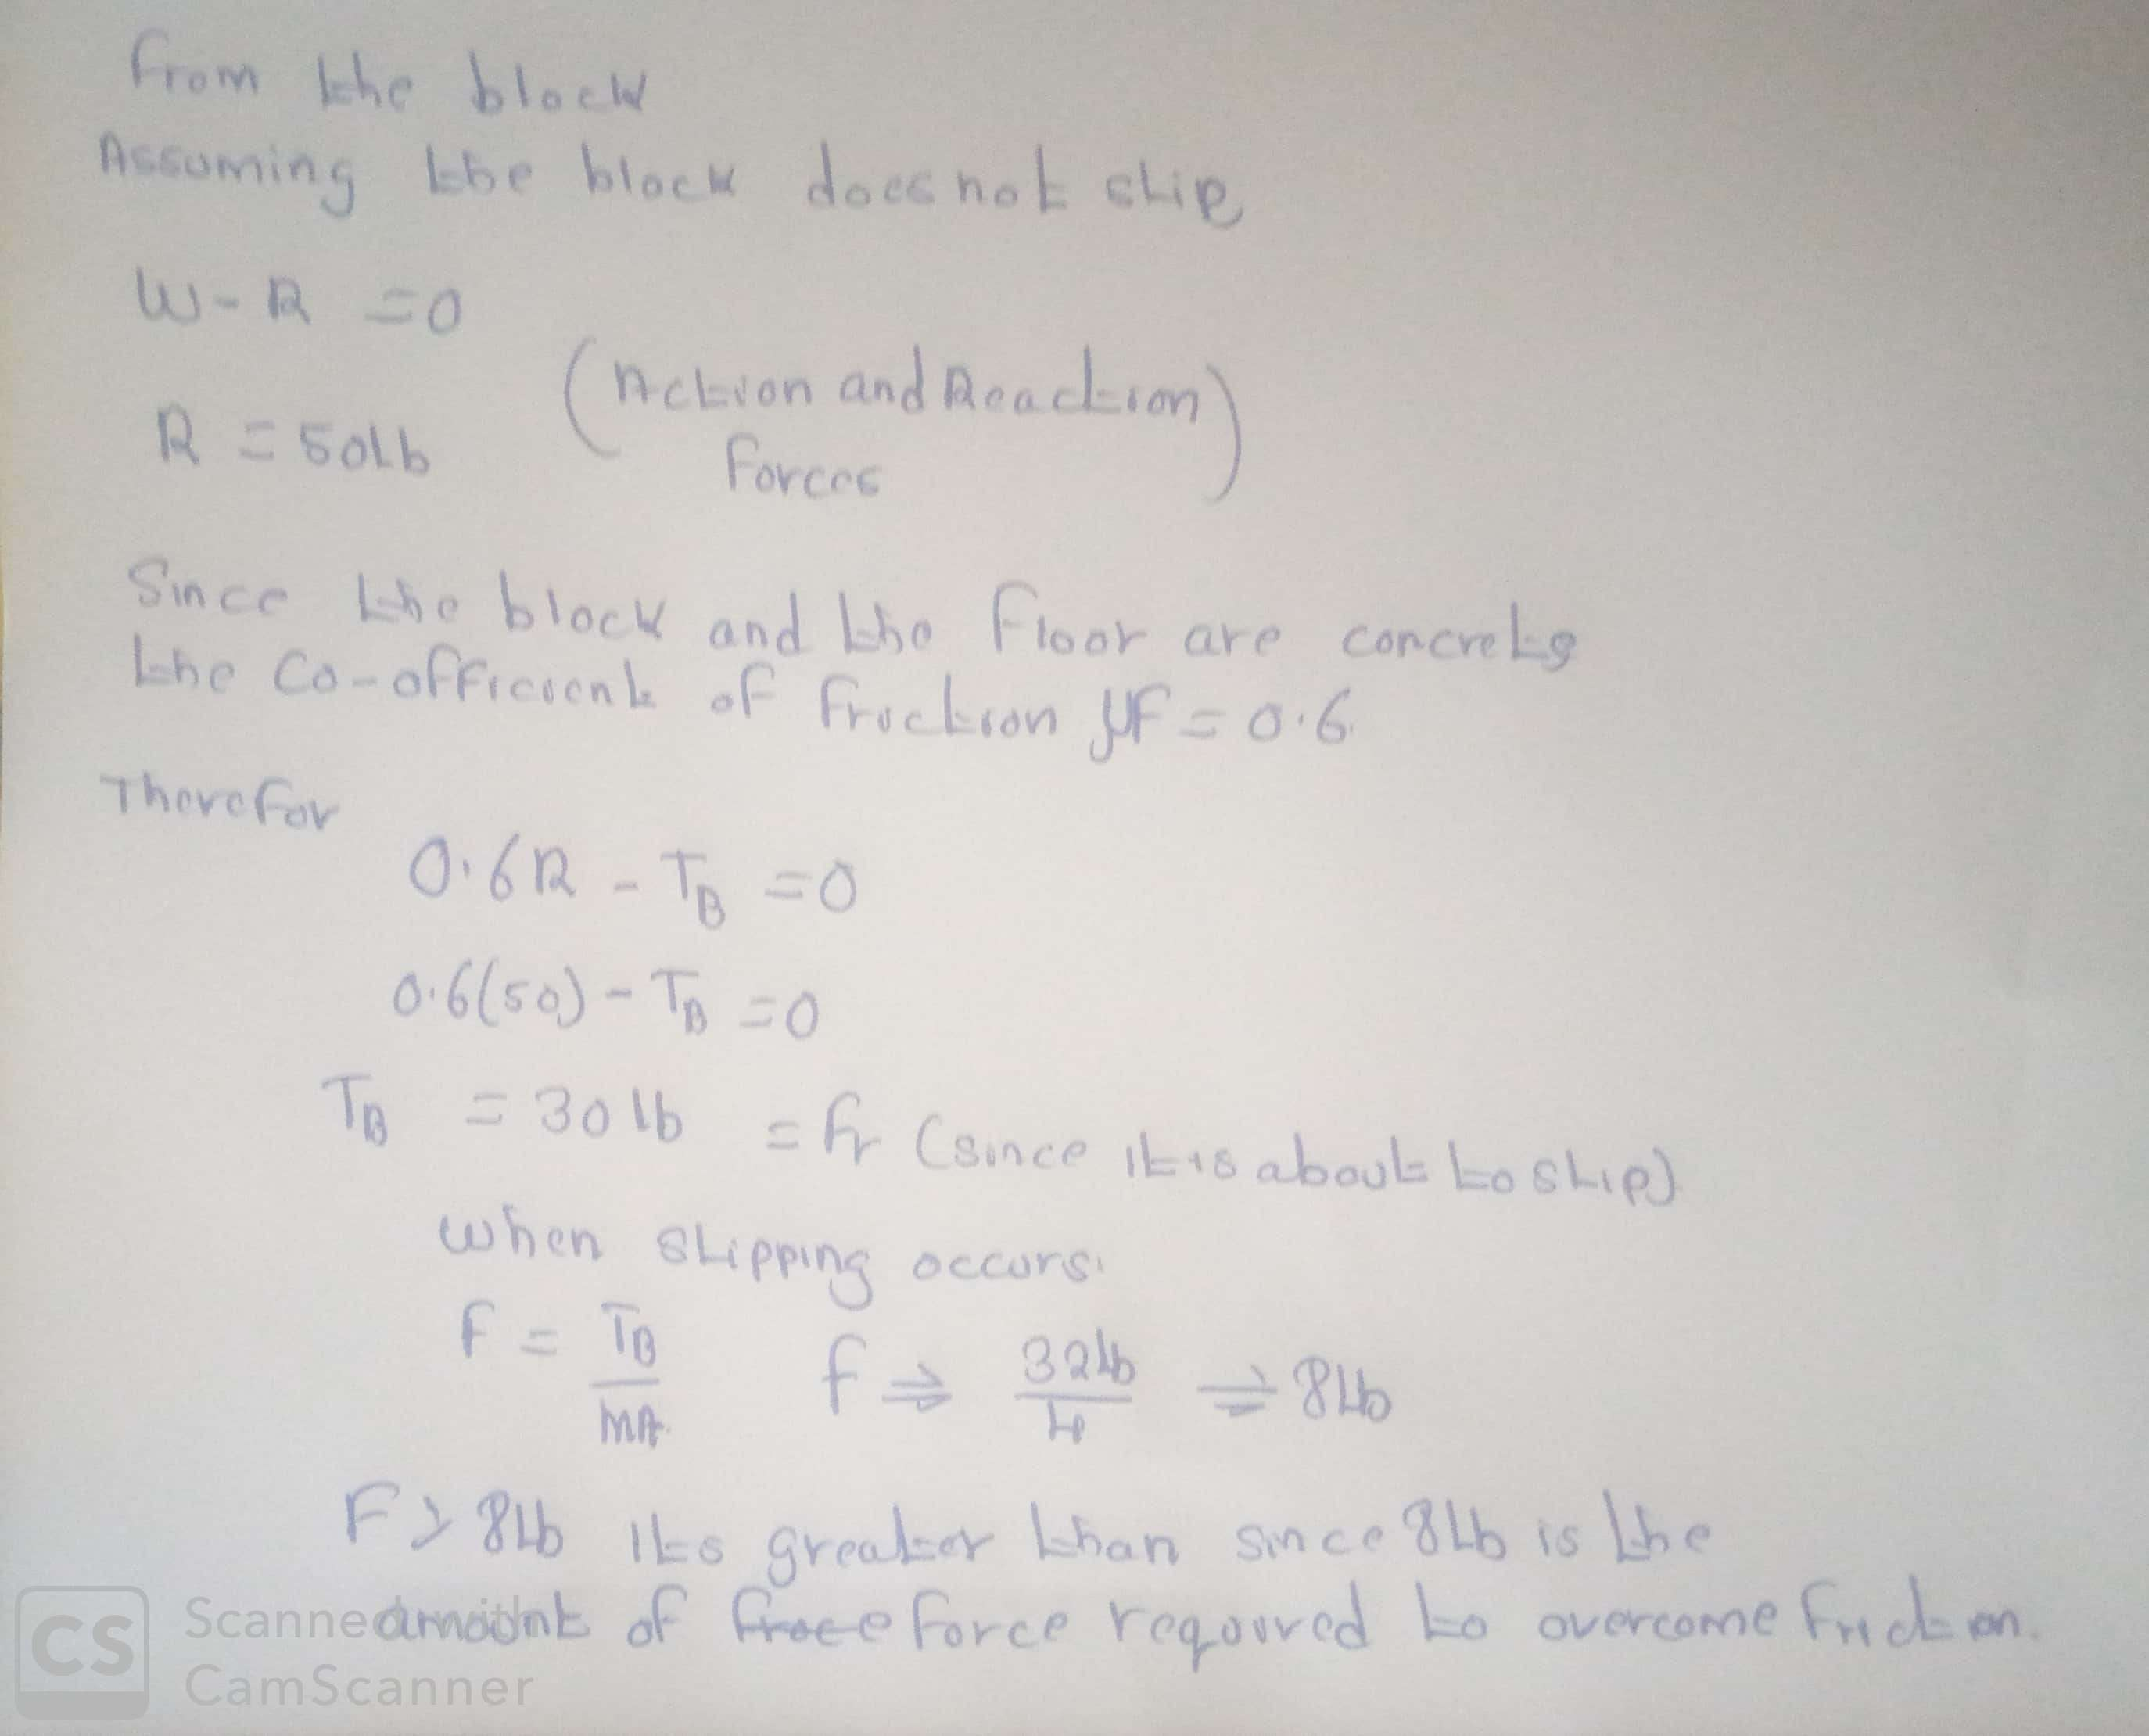 From the block
Assuming the block does not slip
W - R = 0
(Action and Reaction)
R = 50Lb
Forces
Since the block and the floor are concrete
the co-officient of friction μF = 0.6
Therefor
0.6R - TB = 0
0.6(50) - TB = 0
TB = 30 lb = fr (since it is about to slip)
when slipping occurs.
F = TB/MA f ⇒ 32lb/4 ⇒ 8Lb
F > 8Lb its greater than since 8Lb is the
amount of froce force required to overcome friction.
CS Scanned with
CamScanner